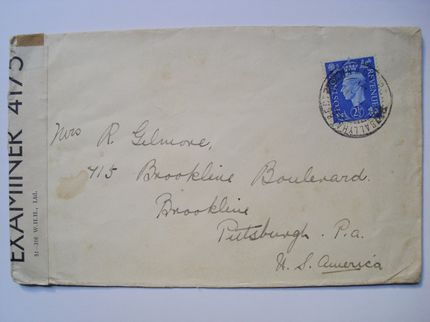 EXAMINER 4175
51-316 W.H.H., Ltd.
POSTAGE REVENUE
2½
Mrs R Gilmore,
715 Brookline Boulevard
Brookline
Pittsburgh. P.a.
U. S. America